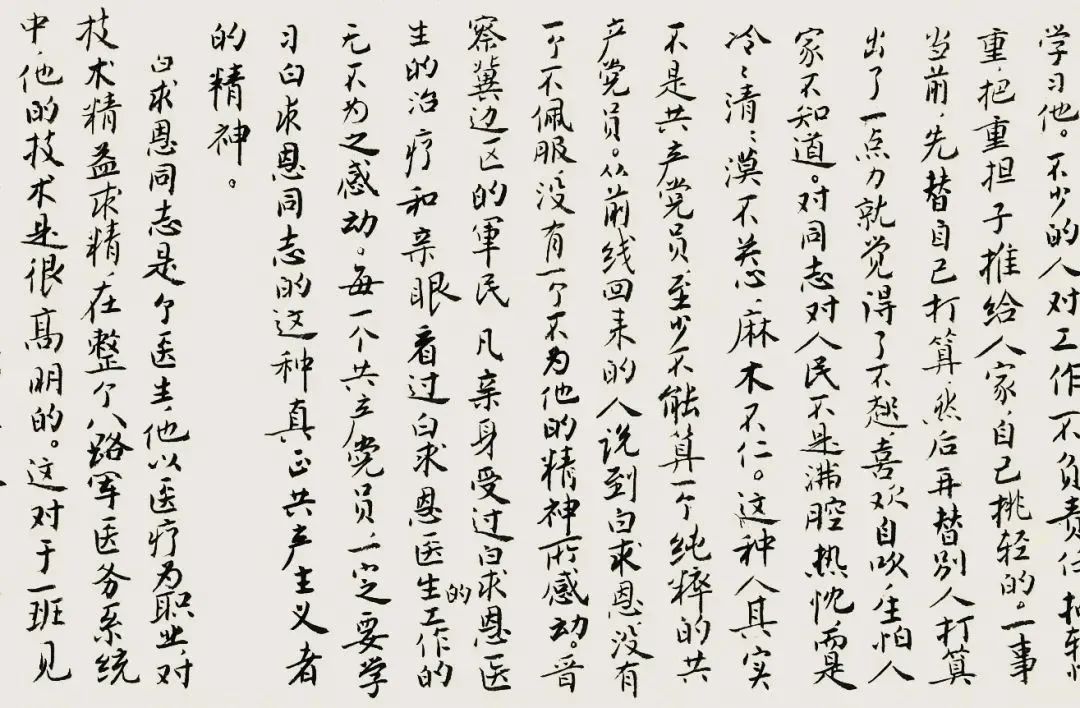 学习他。不少的人对工作不负责任
重,把重担子推给人家,自己挑轻的。一事
当前,先替自己打算,然后再替别人打算
出了一点力就觉得了不起,喜欢自吹,生怕人
家不知道。对同志对人民不是满腔热忱,而是
冷、清、漠不关心,麻木不仁。这种人其实
不是共产党员,至少不能算一个纯粹的共
产党员。从前线回来的人说到白求恩,没有
一个不佩服,没有一个不为他的精神所感动。晋
察冀边区的軍民 凡亲身受过白求恩医
生的治疗和亲眼看过白求恩医生工作的
的
无不为之感动。每一个共产党员,一定要学
习白求恩同志的这种真正共产主义者
的精神。
白求恩同志是个医生,他以医疗为职业,对
技术精益求精,在整个八路军医务系统
中,他的技术是很高明的。这对于一班见